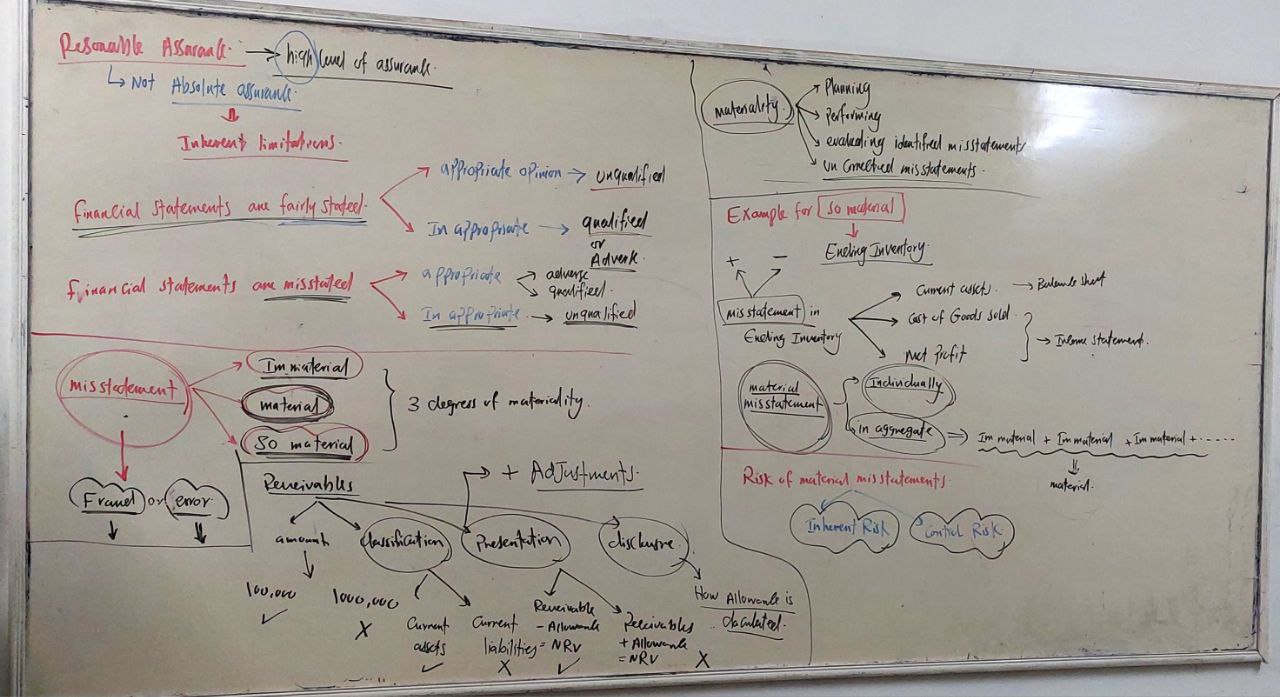 Resonable Assurance → high level of assurance.
↳ Not Absolute assurance.
Inherent limitations.
financial statements are fairly stated.
appropriate opinion → unqualified
In appropriate → qualified
or
Adverse.
financial statements are misstated
appropriate → adverse
→ qualified.
In appropriate → unqualified
misstatement
Immaterial
material
So material
3 degrees of materiality.
Fraud or error
Receivables
→ + Adjustments.
amount
classification
Presentation
disclosure.
100,000 ✓
1000,000 X
Current
assets
✓
Current
liabilities
X
Receivable
- Allowance
= NRV
✓
Receivables
+ Allowance
= NRV
X
How Allowance is
materiality.
Planning
performing
evaluating identified misstatements
un corrected misstatements.
Example for So material
Ending Inventory.
+ -
misstatement in
Ending Inventory
Current assets. → Balance sheet
Cost of Goods Sold.
Net Profit
→ Income statement.
material
misstatement
Individually
in aggregate ⇒ Immaterial + Immaterial + Immaterial + ......
material.
Risk of material misstatements.
Inherent Risk
Control Risk